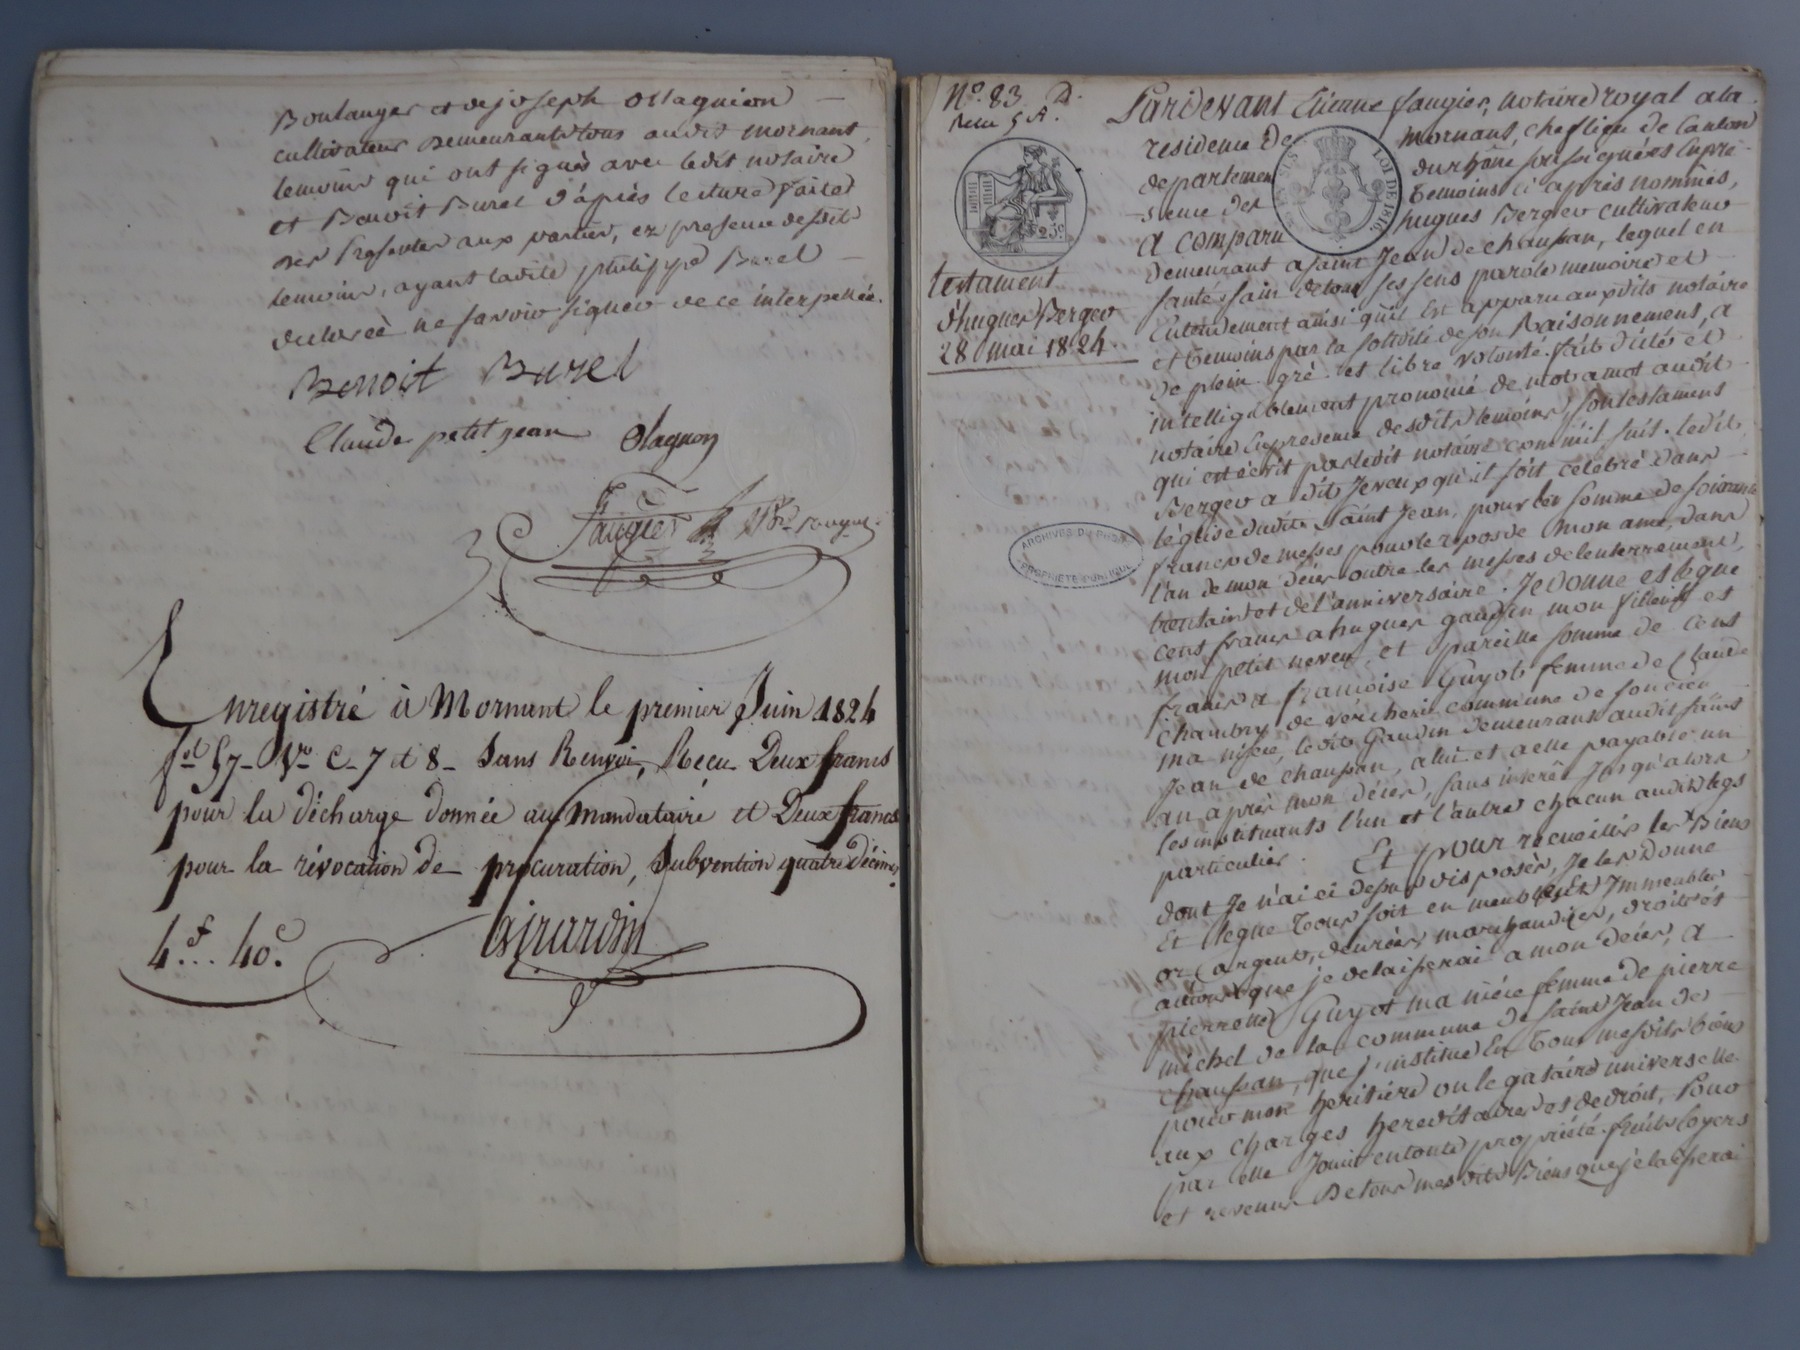 Boulanger et de joseph ollagnion
cultivateur demeurants tous audit mornant,
temoins qui ont signés avec ledit notaire
et Benoit Burel d'apiès lecture faite
aux parties, en presence desdits
temoins, ayant ladite philippe Burel
declareé ne savoir signer de ce interpellée.
Benoit Burel
Claude petit jean Olagnon
Faugier
Enregistré à Mornant le premier Juin 1824
fol 57 Vo C. 7 et 8 Sans Renvoi, Reçu Deux francs
pour la décharge donnée au mandataire et Deux francs
pour la révocation de procuration, Subvention quatre Décimes
4f... 40c.
Girardin
No. 83 D.
testament
d'hugues Berger
28 mai 1824
Pardevant Etienne faugier, notaire royal a la
residence de mornant, chef lieu de canton
departement du rhône soussigné et en pré-
sence des temoins ci après nommés,
a comparu hugues Berger cultivateur
demeurant a saint Jean de chaussan, lequel en
santé, sain de tous ses sens parole memoire et
entendement ainsi qu'il est apparu auxdits notaire
et temoins par la solidité de son Raisonnement, a
de plein gré et libre volonté fait dicté et
intelligiblement prononcé de mot a mot audit
notaire en presence desdits temoins, son testament
qui est écrit par ledit notaire comm'il suit. ledit
Berger a dit Je veux qu'il soit celebré dans
l'église dudit saint Jean, pour la somme de soixante
francs de messes pour le repos de mon ame, dans
l'an de mon décès outre les messes de l'enterrement,
trentain et de l'anniversaire. Je donne et legue
cent francs a hugues gaudin mon filleul et
mon petit neveu, et pareille somme de cent
francs a francoise Guyot femme de Claude
chambry de verchery commune de soucieu
ma niéce, ledit Gaudin demeurant audit saint
Jean de chaussan, a lui et a elle payable un
an après mon décès, sans interêt jusqu'alors
les instituants l'un et l'autre chacun audit legs
particulier. Et pour recueillir les Biens
dont Je n'ai ci dessus disposer, Je les donne
Et legue tous soit en meubles Et Immeubles
or, argent, denrées, marchandises, droits et
actions que je delaisserai a mon décès, a
pierrette Guyot ma niéce femme de pierre
michel de la commune de saint Jean de
chaussan, que j'institue En tous mesdits biens
pour mon heritiére ou legataire universelle
aux charges hereditaires et de droit, Pour
par elle Jouir en toute propriété fruits loyers
et revenus De tous mesdits Biens que je laisserai
23c
LOI DE 1816
ARCHIVES DU RHÔNE
PROPRIÉTÉ PUBLIQUE